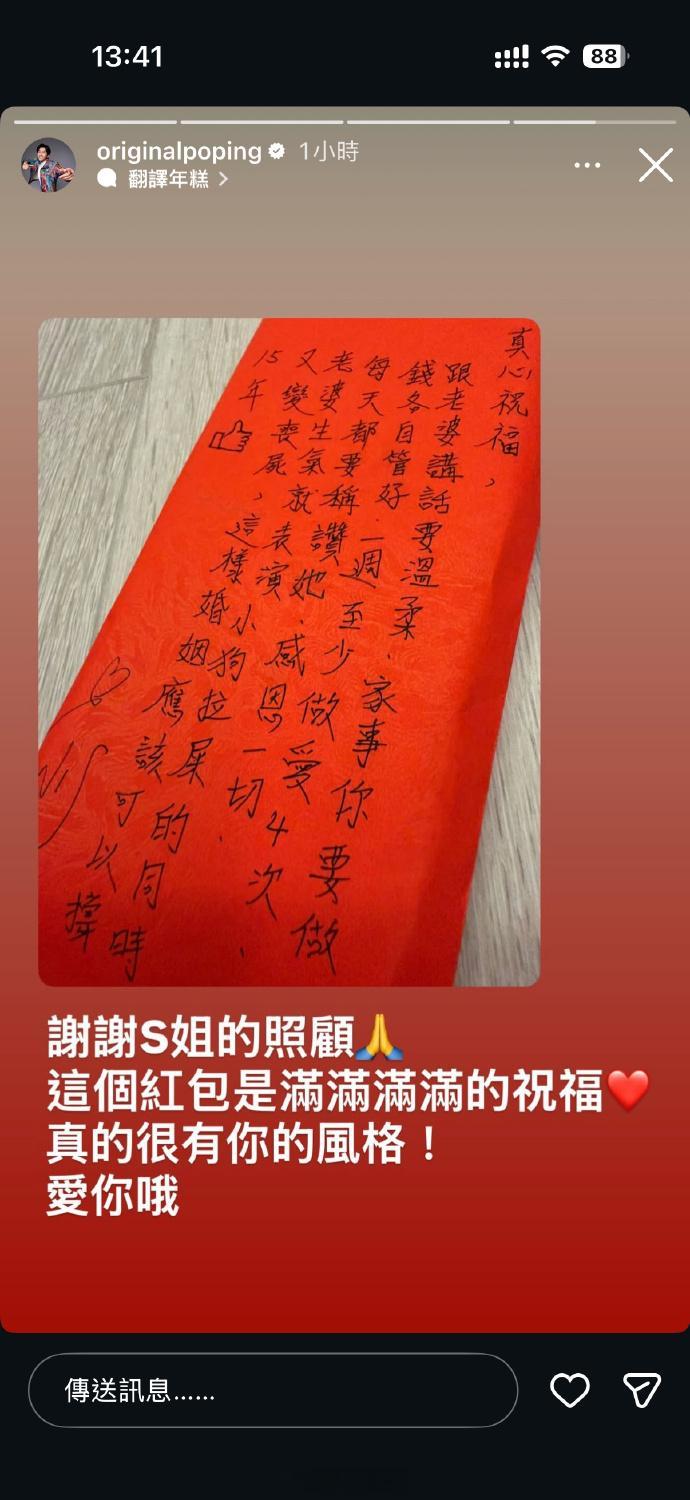 13:41
88
originalpoping 1小時
翻譯年糕
真心祝福，
跟老婆講話要溫柔．家事你要做
錢各自管好．一週至少做愛4次．
每天都要稱讚她．感恩一切．
老婆生氣就表演小狗拉屎的同時
又變喪屍，這樣婚姻應該可以撐
15年
謝謝S姐的照顧🙏
這個紅包是滿滿滿滿的祝福❤️
真的很有你的風格！
愛你哦
傳送訊息......